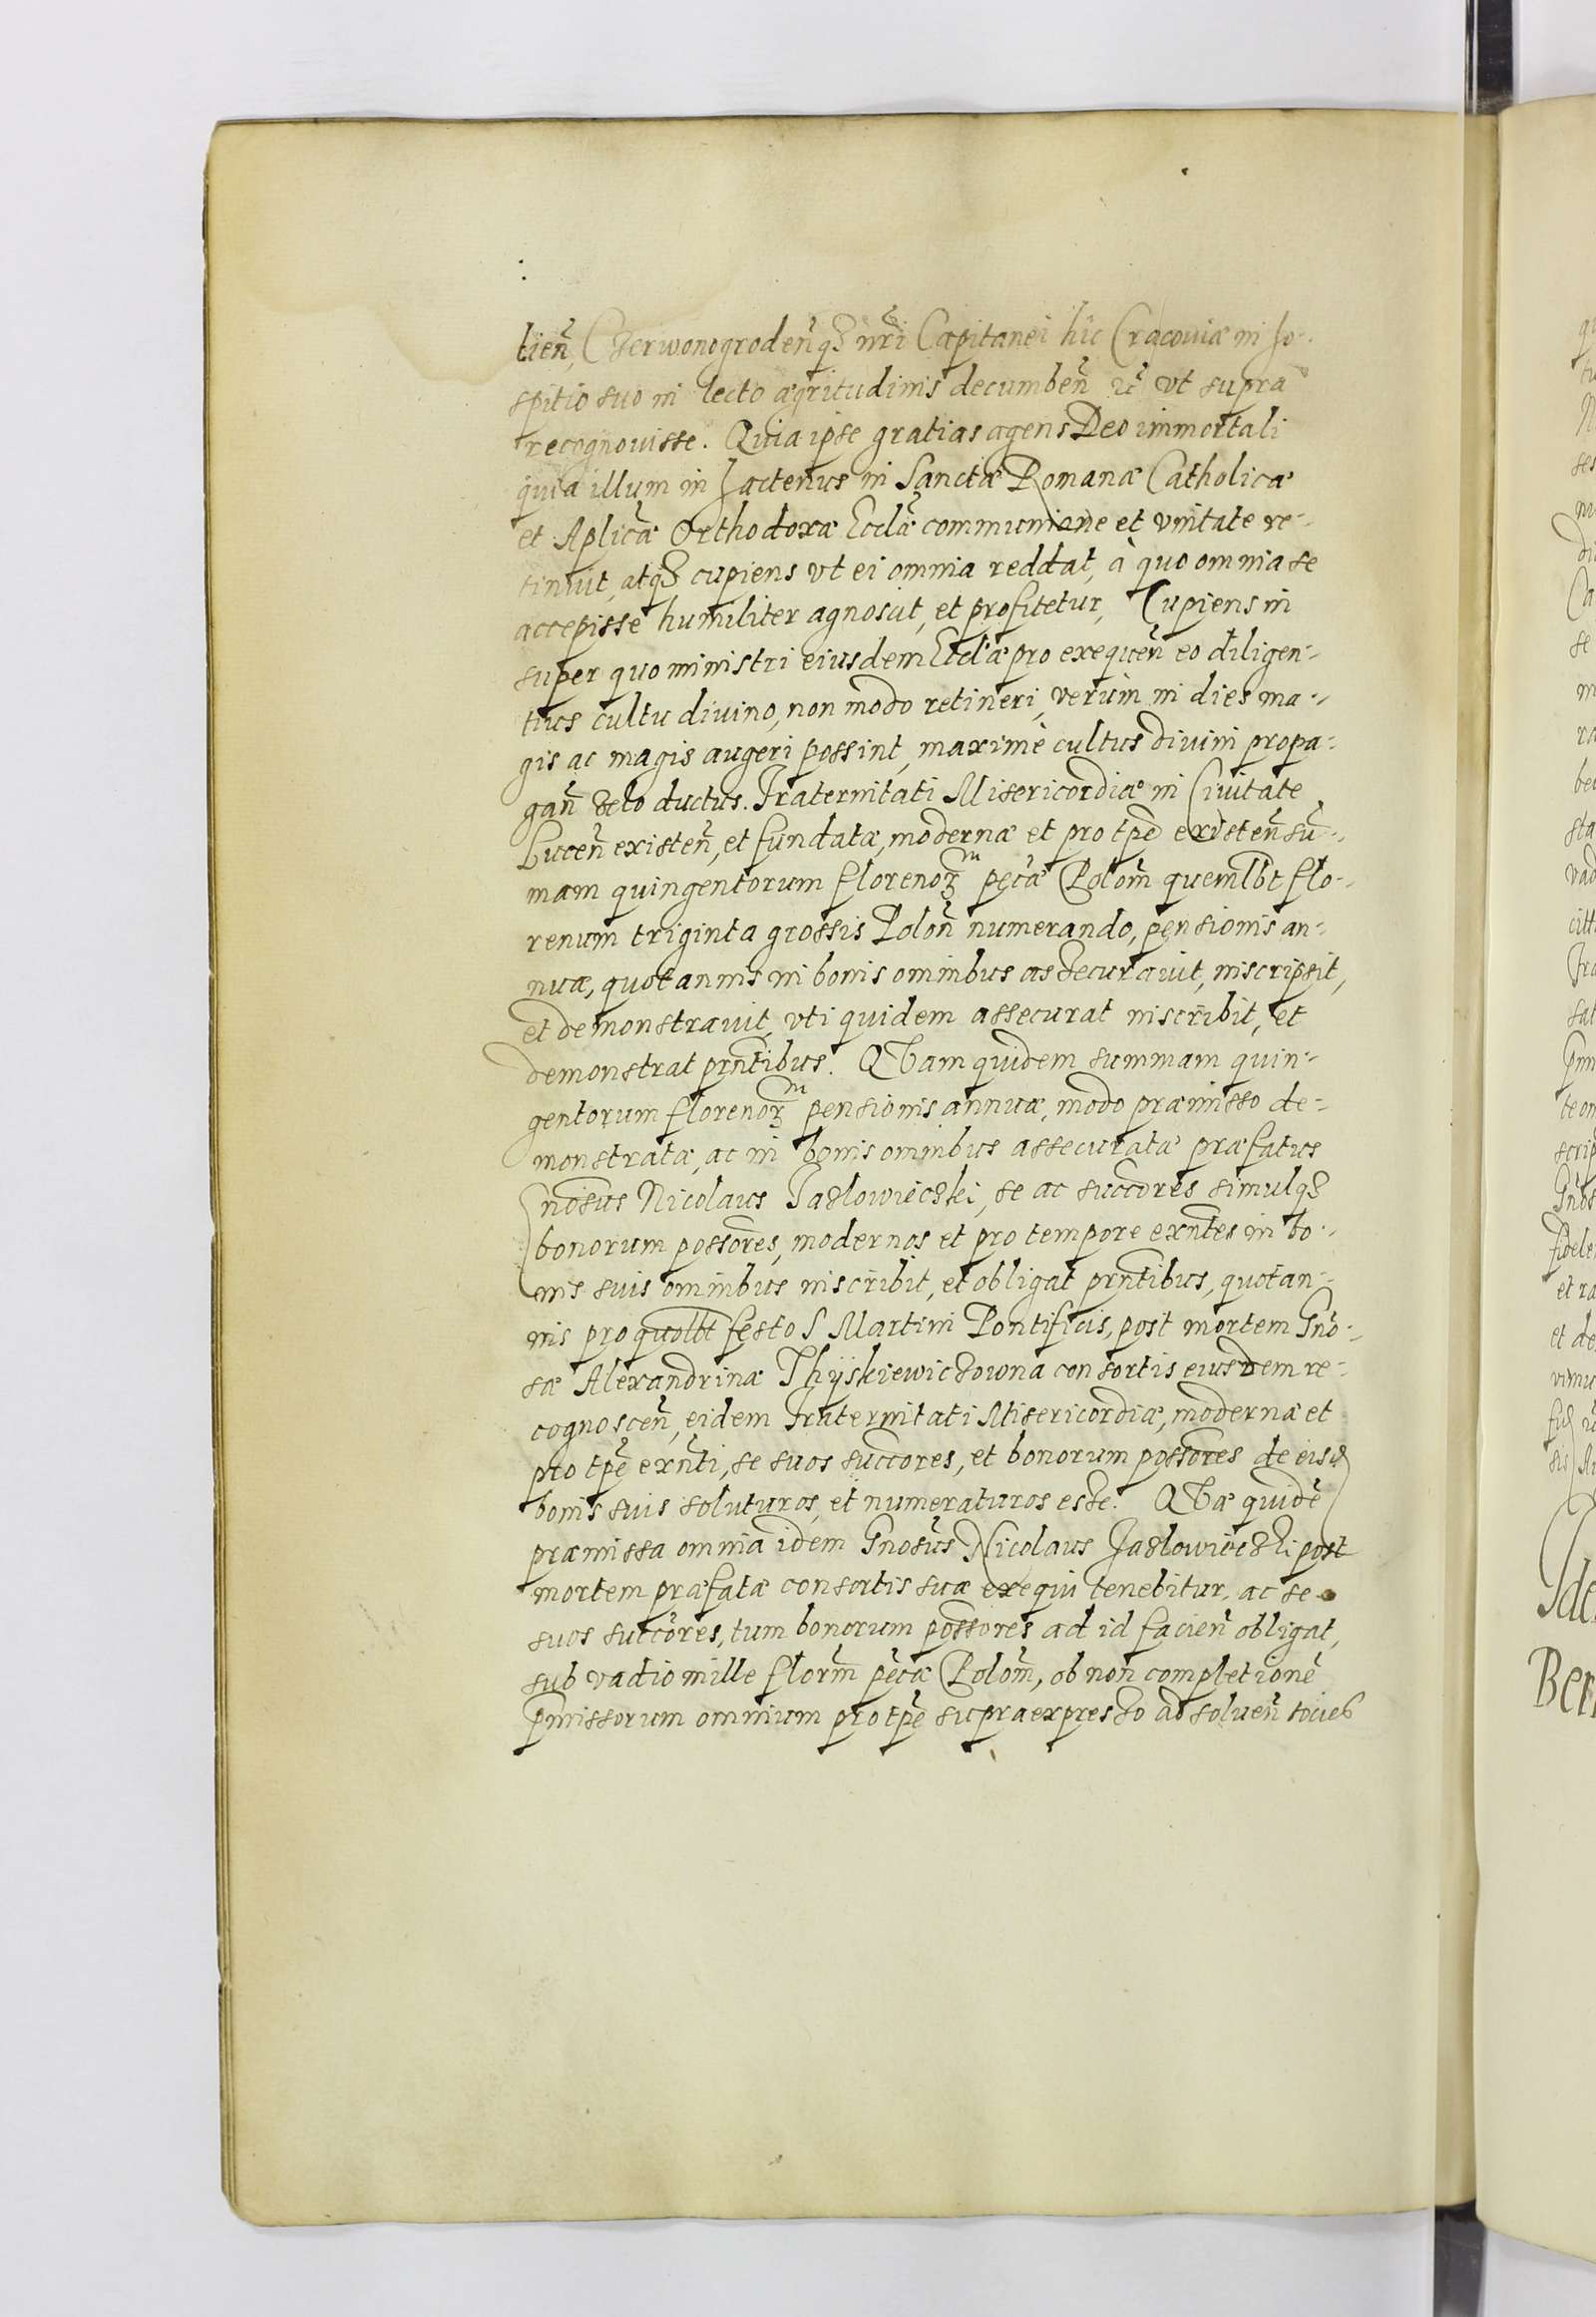 tien̄, Czerwonogroden̄qȝ nr̄i Capitanei hic Cracoviæ in ho-
spitio suo in lecto ægritudinis decumben̄ ꝛc̄ vt supra
recognouisse. Quia ipse gratias agens Deo immortali
quia illum in hactenus in Sanctæ Romanæ Catholicæ
et Aplicæ Orthodoxæ Ecclæ communione et vnitate re-
tinuit, atqȝ cupiens vt ei omnia reddat, à quo omnia se
accepisse humiliter agnoscit, et profitetur, Cupiens in
super quo ministri eiusdem Ecclæ pro exequen̄ eo diligen-
tius cultu divino, non modo retineri, verùm in dies ma-
gis ac magis augeri possint, maximè cultus divini propa-
gan̄ zelo ductus. Fraternitati Misericordiæ in Civitate
Lucen̄ existen̄, et fundatæ, modernæ et pro tp̄e existen̄ sū-
mam quingentorum florenoꝝ m pec̄æ Polon̄ quemlbt flo-
renum triginta grossis Polon̄ numerando, pensionis an-
nuæ, quotannis in bonis omnibus assecuravit, inscripsit,
et demonstravit, vti quidem assecurat inscribit, et
demonstrat prn̄tibus. Quam quidem summam quin-
gentorum florenoꝝ m pensionis annuæ, modo præmisso de-
monstratæ, ac in bonis omnibus assecuratæ præfatus
Gnosus Nicolaus Jazlowieczki, se ac succores simulqȝ
bonorum possores, modernos et pro tempore exn̄tes in bo-
nis suis omnibus inscribit, et obligat prn̄tibus, quotan-
nis pro quolbt festo S Martini Pontificis, post mortem Gno-
sæ Alexandrinæ Thÿskiewiczowna consortis eiusdem re-
cognoscen̄, eidem Fraternitati Misericordiæ, modernæ et
pro tp̄e exn̄ti, se suos succores, et bonorum possores de eisd
bonis suis soluturos, et numeraturos esse. Quæ quidē
præmissa omnia idem Gnosus Nicolaus Jazlowieczki post
mortem præfatæ consortis suæ exequi tenebitur, ac se
suos succores, tum bonorum possores ad id facien̄ obligat,
sub vadio mille florm̄ pec̄æ Polon̄, ob non completionē
p̄missorum omnium pro tp̄e supraexpresso ad soluen̄ toties